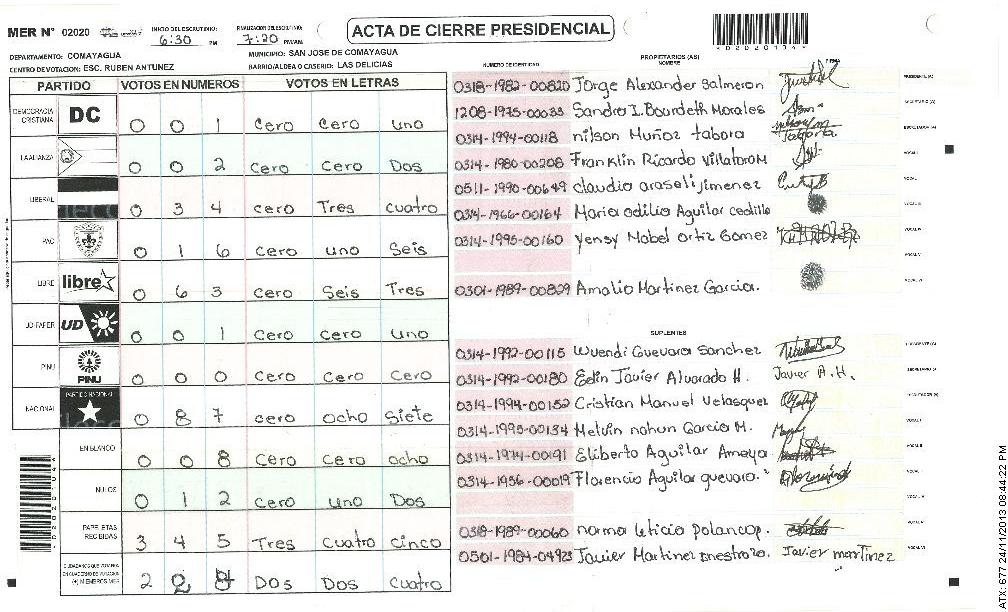 MER N° 02020
INICIO DEL ESCRUTINIO: 6:30 PM
FINALIZACION DEL ESCRUTINIO: 7:20 PM/AM
ACTA DE CIERRE PRESIDENCIAL
DEPARTAMENTO: COMAYAGUA
MUNICIPIO: SAN JOSE DE COMAYAGUA
CENTRO DE VOTACION: ESC. RUBEN ANTUNEZ
BARRIO/ALDEA O CASERIO: LAS DELICIAS
PARTIDO VOTOS EN NUMEROS VOTOS EN LETRAS
DEMOCRACIA CRISTIANA DC 0 0 1 cero cero uno
LA ALIANZA 0 0 2 cero cero Dos
LIBERAL 0 3 4 cero Tres cuatro
PAC 0 1 6 cero uno Seis
LIBRE libre 0 6 3 cero Seis Tres
UD-FAPER UD 0 0 1 cero cero uno
PINU PINU 0 0 0 cero cero cero
NACIONAL PARTIDO NACIONAL 0 8 7 cero ocho siete
EN BLANCO 0 0 8 cero cero ocho
NULOS 0 1 2 cero uno Dos
PAPELETAS RECIBIDAS 3 4 5 Tres cuatro cinco
2 2 Dos Dos cuatro
NUMERO DE IDENTIDAD
PROPIETARIOS (AS)
NOMBRE
FIRMA
0318-1982-00820 Jorge Alexander Salmeron
1208-1985-00033 Sandra I. Bourdeth Morales
0314-1994-00118 nilson Muñoz tabora
0314-1980-00208 Franklin Ricardo Villafora M
0511-1990-00649 claudio araseli jimenez
0314-1966-00164 Maria odilia Aguilar cedillo
0314-1995-00160 yensy Mabel ortiz Gomez
0301-1989-00829 Amalio Martinez Garcia.
SUPLENTES
0314-1992-00115 Wuendi Guevara Sanchez
0314-1992-00180 Edin Javier Alvarado H. Javier A.H.
0314-1994-00152 Cristian Manuel Velasquez
0314-1995-00134 Melvin nahun Garcia M.
0314-1974-00191 Eliberto Aguilar Amaya
0314-1956-00019 Florencio Aguilar guevara.
0318-1989-00060 norma leticia polanco p.
0501-1984-04923 Javier Martinez inestroza. Javier martinez
ATX: 677.24/11/2013 08:44:22 PM